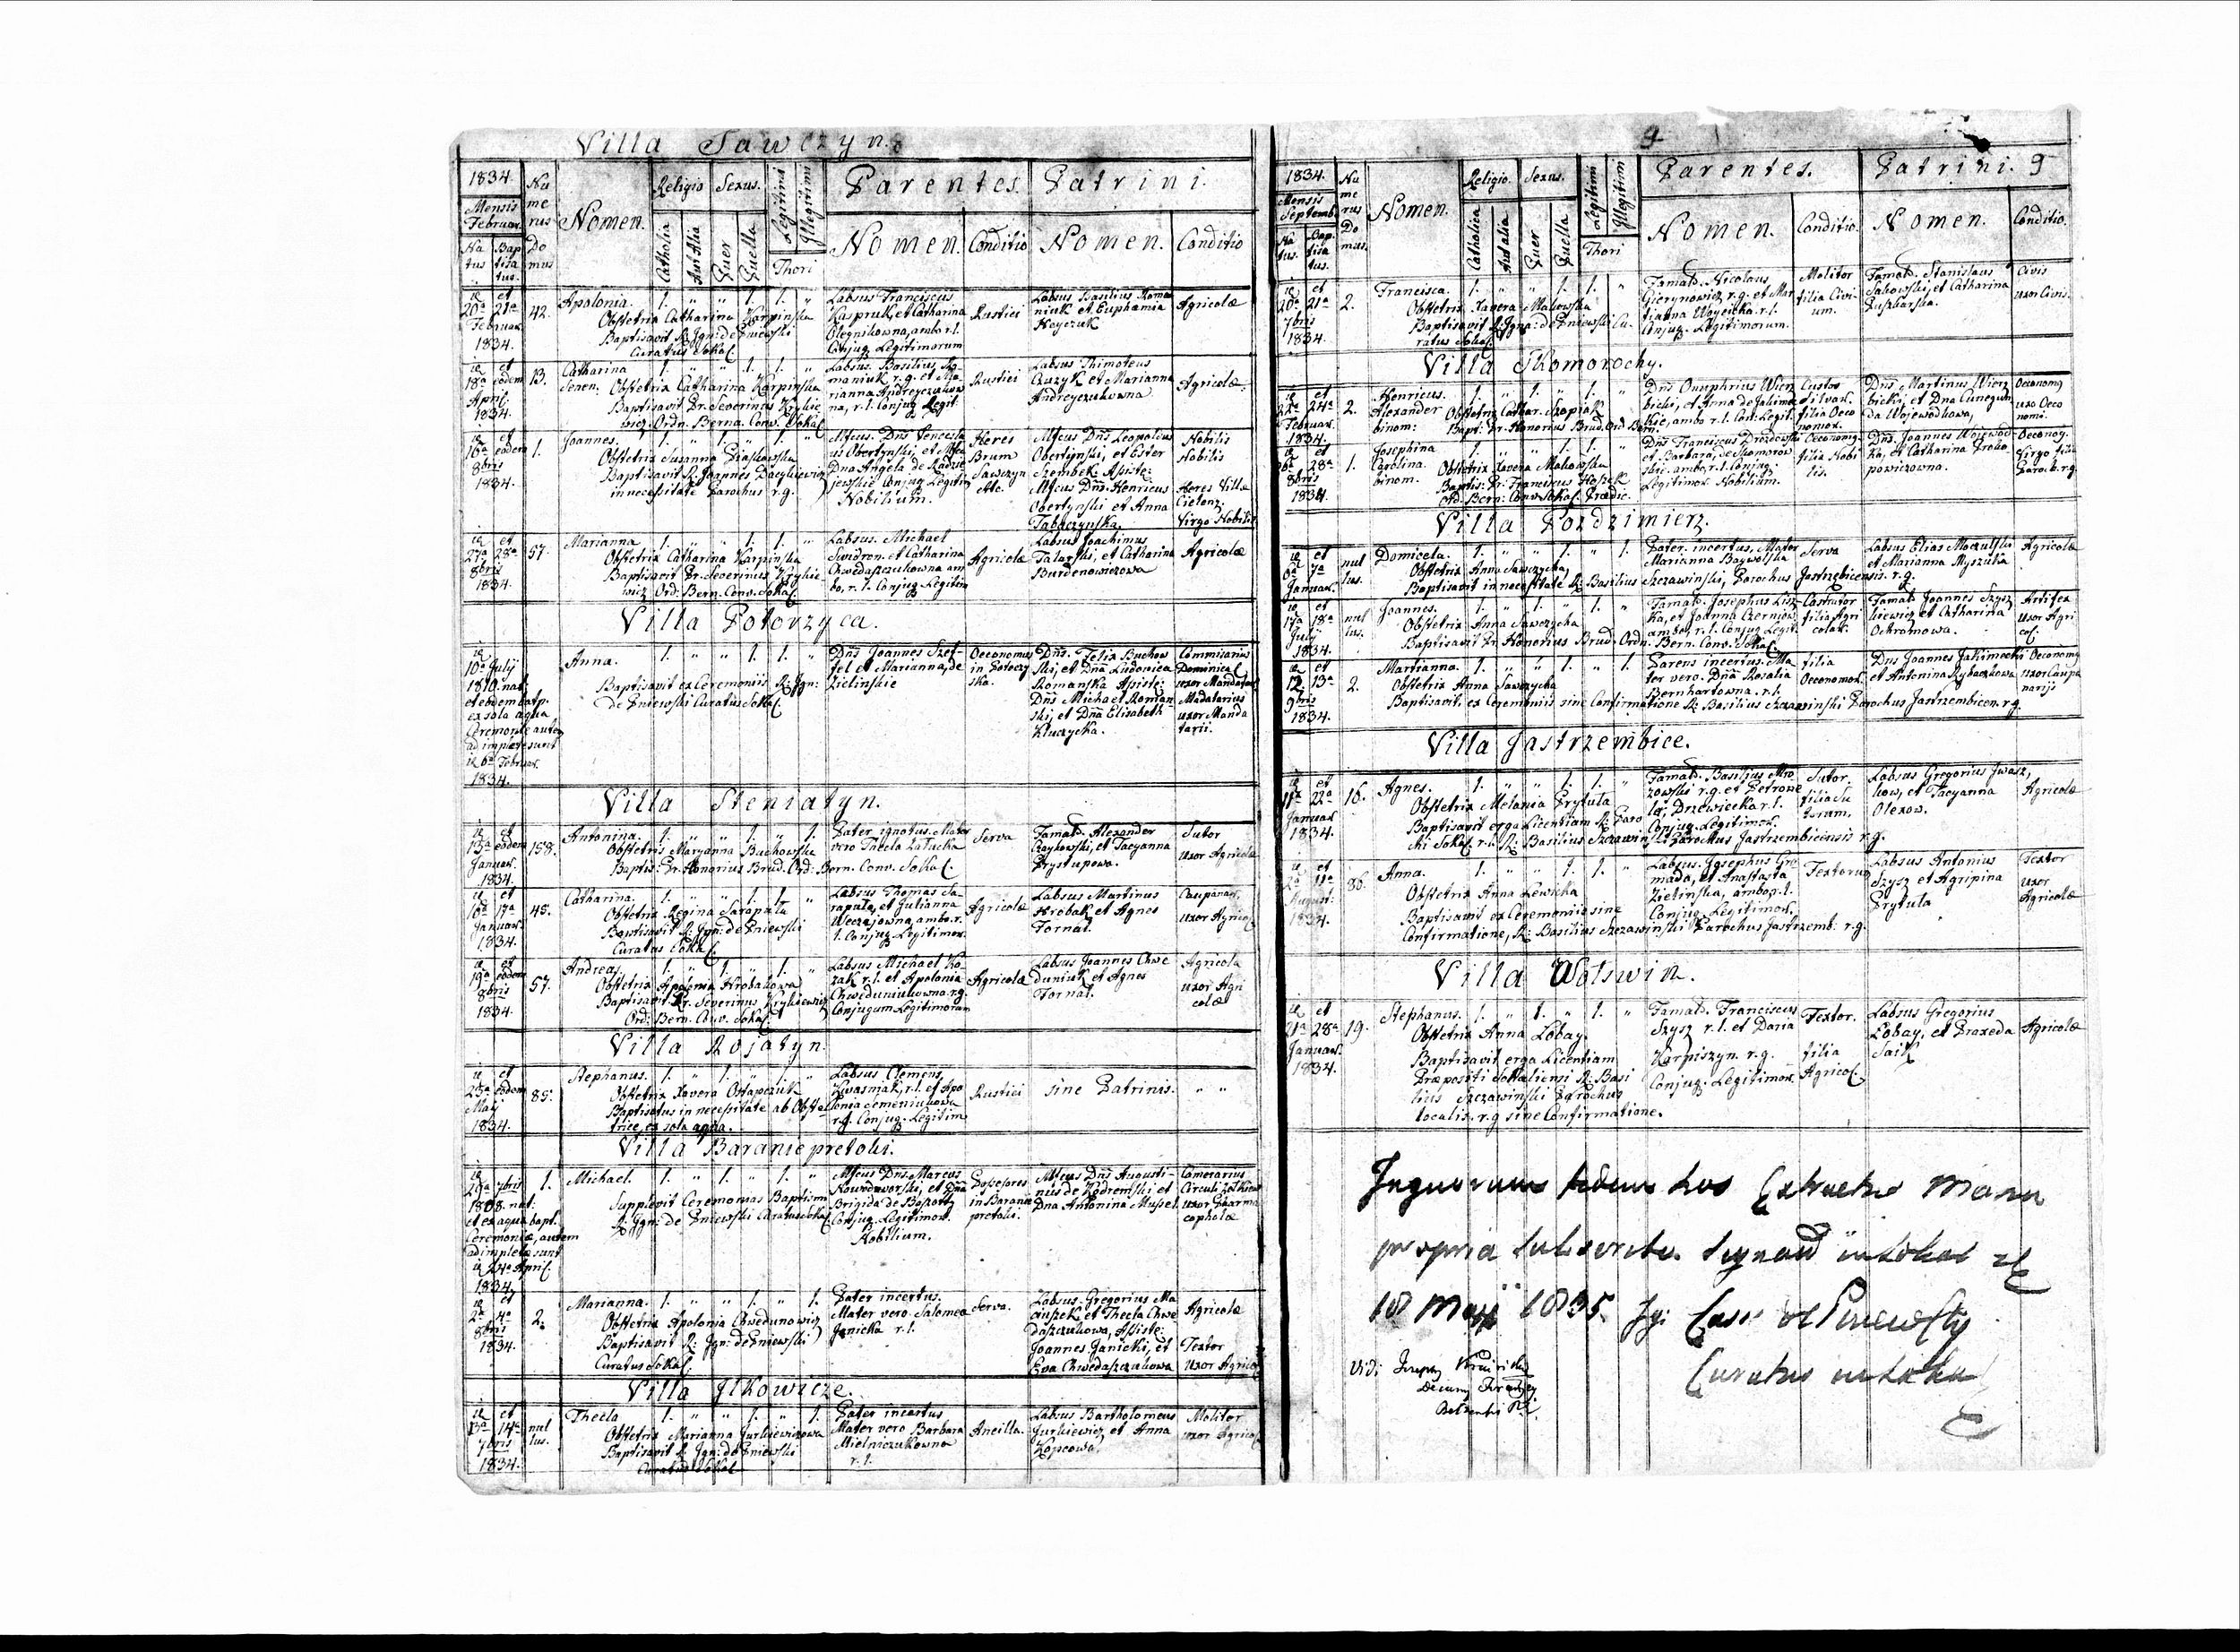 Villa Sawczyn.
1834.
Mensis
Februar.
Na
tus
Bap
tisa
tus.
Nu
me
rus
Do
mus
Nomen.
Religio
Catholica
Aut Alia
Sexus.
Puer
Puella
Legitimi
Illegitimi
Thori
Parentes.
Nomen.
Conditio
Patrini.
Nomen.
Conditio
ia et
20a 21a
Februar.
1834.
42.
Apolonia. 1. " " 1. 1. "
Obstetrix Catharina Karpinska
Baptisavit R: Ign: de Pniewski
Curatus Sokal.
Labsus Franciscus
Kaspruk et Catharina
Olegnikowna, ambo r.l.
Conjug. Legitimorum
Rustici
Labsus Basilius Roma
niuk et Euphamia
Heyczuk
Agricolæ
ia et
18a eodem
April.
1834.
13.
Catharina 1. " " 1. 1. "
Senen: Obstetrix Catharina Karpinska
Baptisavit Fr. Severinus Krykie
wicz Ordn. Berna. Conv. Sokal.
Labsus. Basilius Ro
maniuk r.g. et Ma
rianna Andreyczukow
na, r.l. Conjug. Legit.
Rustici
Labsus Thimoteus
Guzyk et Marianna
Andreyczukowna
Agricolæ.
ia et
16a eodem
8bris
1834.
1.
Joannes. 1. " 1. " 1. "
Obstetrix Susanna
Baptisavit R: Joannes
in necessitate Parochus r.g.
Mfcus. Dns Vencesla
us Obertynski, et Mfca
Dna Angela de Radzie
jewskie Conjug Legitim
Nobilium.
Heres
Brum
Sawczyn
etc.
Mfcus Dns Leopoldus
Obertynski, et Ester
Szembek. Assiste:
Mfcus Dns. Henricus
Obertynski et Anna
Tabaczynska.
Nobilis
Nobilis
Heres Villæ
Cielonz
Virgo Nobilis
ia et
27a 28a
8bris
1834.
57.
Marianna 1. " " 1. 1. "
Obstetrix Catharina Karpinska
Baptisavit Fr. Severinus Krykie
wicz Ord: Bern. Conv. Sokal.
Labsus. Michael
Swidron. et Catharina
Chwedaszczukowna am
bo, r.l. Conjug Legitim
Agricolæ
Labsus Joachimus
Talarski, et Catharina
Burdenowiczowa
Agricolæ
Villa Potorzyca.
ia
10a July
1810. nat:
et eodem batp.
ex sola aqua
Ceremoniæ autem
ad impletæ sunt
ia 6a Februar.
1834.
Anna. 1. " " 1. 1. "
Baptisavit ex Ceremoniis R: Ign:
de Pniewski Curatus Sokal.
Dns Joannes Szef-
fel et Marianna, de
Zielinskie
Oeconomus
in Potorzy
ska.
Dns. Felix Buchow
ski, et Dna Ludovica
Romanska Assiste:
Dns Michael Roman
ski, et Dna Elisabeth
Kluczycka.
Commisarius
Dominical.
uxor Mandatarii
Madatarius
uxor Manda
tarii.
Villa Steniatyn.
ia et
13a eodem
Januar.
1834.
158.
Antonina. 1. " " 1. " 1.
Obstetrix Maryanna Buchowska
Baptis. Fr. Honorius Brud. Ord: Bern. Conv. Sokal.
Pater ignotus. Mater
vero Thecla Zatucka
Serva
Famat. Alexander
Czaykowski, et Tacyanna
Przystupowa.
Sutor
uxor Agricolæ
ia et
16a 17a
Januar.
1834.
45.
Catharina. 1. " " 1. 1. "
Obstetrix Regina Sarapata
Baptisavit R: Ign: de Pniewski
Curatus Sokal.
Labsus Thomas Sa-
rapata, et Julianna
Weczejowna, ambo. r.
l. Conjug Legitimor.
Agricolæ
Labsus Martinus
Hrobak, et Agnes
Tornal.
Caupanar.
uxor Agricol.
ia et
19a eodem
8bris
1834.
57.
Andreas. 1. " 1. " 1. "
Obstetrix Apolonia Hrobakowa
Baptisavit Fr. Severinus Krykiewicz
Ord: Bern. Conv. Sokal.
Labsus Michael Ko
zak r.l. et Apolonia
Chweduniukowna r.g.
Conjugum Legitimorum
Agricolæ
Labsus Joannes Chwe
duniuk, et Agnes
Tornal.
Agricola
uxor Agri
colæ
Villa Rojatyn.
ia et
25a eodem
May
1834.
85.
Stephanus. 1. " 1. " 1. "
Obstetrix Xavera Ostapczuk
Baptisatus in necessitate ab Obste
trice, ex sola aqua.
Labsus Clemens
Kwasniak, r.l. et Apo
lonia Semeniukowa
r.g. Conjug. Legitim
Rustici
sine Patrinis.
" "
Villa Baranie pretoki.
ia
29a 7bris
1808. nat:
et ex aqua bapt.
Ceremoniæ, autem
adimpletæ sunt
ia 24a April.
1834.
1.
Michael. 1. " 1. " 1. "
Supplevit Ceremonias Baptismi
R: Ign: de Pniewski Curatus Sokal.
Mfcus Dns. Marcus
Nowodworski, et Dna
Brigida de
Conjug. Legitimor.
Nobilium.
Possesores
in Baranie
pretoki.
Mfcus Dns Augusti-
nus de et
Dna Antonina Mussel.
Camerarius
Circuli Zolkiew
uxor Pharma
copholæ
ia et
2a 4a
8bris
1834.
2.
Marianna. 1. " " 1. " 1.
Obstetrix Apolonia Chwedunowicz
Baptisavit R: Ign: de Pniewski
Curatus Sokal.
Pater incertus.
Mater vero Salomea
Janicka r.l.
Serva.
Labsus. Gregorius Ma
ciuszek, et Thecla Chwe
daszczukowa, Assiste:
Joannes Janicki, et
Eva Chwedaszczukowa
Agricolæ
Textor
uxor Agricol.
Villa Jlkowicze.
ia et
13a 14a
7bris
1834.
nul
lus.
Thecla 1. " " 1. " 1.
Obstetrix Marianna Jurkiewiczowa
Baptisavit R: Ign: de Pniewski
Curatus Sokal
Pater incertus
Mater vero Barbara
Mielniczukowna
r.l.
Ancilla.
Labsus Bartholomeus
Jurkiewicz, et Anna
Kopcowa.
Molitor
uxor Agricol.
9
1834.
Mensis
Septemb.
Na
tus.
Bap.
tisa
tus.
Nu
me
rus
Do
mus.
Nomen.
Religio.
Catholica
Aut alia
Sexus.
Puer
Puella
Legitimi
Illegitim
Thori
Parentes.
Nomen.
Conditio.
Patrini. 9
Nomen.
Conditio.
ia et
20a 21a
7bris
1834.
2.
Francisca. 1. " " 1. 1. "
Obstetrix Xavera Makowska
Baptisavit R: Igna: de Pniewski Cu-
ratus Sokal.
Famat. Nicolaus
Gierynowicz r.g. et Mar
tianna Woycicka. r.l.
Conjug. Legitimorum.
Molitor
filia Civi-
um.
Famat. Stanislaus
Sakowski, et Catharina
Puszkarska.
Civis
uxor Civis.
Villa Skomorochy.
ia et
22a 24a
Februar.
1834.
2.
Henricus. 1. " 1. " 1. "
Alexander Obstetrix Cathar. Szapia
binom: Bapt: Fr. Honorius Brud. Ord Bern.
Dns Onuphrius Wierz
bicki, et Anna de Jakimec
kie, ambo r.l. Con. Legit.
Custos
Silvar.
filia Oeco
nomor.
Dns. Martinus Wierz
bicki, et Dna Cunegun
da Wojewodkowa,
Oeconomg
uxo Oeco
nomi.
ia et
6a 28a
8bris
1834.
1.
Josephina 1. " " 1. 1. "
Carolina. Obstetrix Xavera Makowska
binom. Baptis: Fr. Franciscus
Ord. Bern: Conv. Sokal. Prædic.
Dns Franciscus Drozdowski
et Barbara, de Skomorow
skie. ambo, r.l. Conjug.
Legitimor. Nobilium.
Oeconomg.
filia Nobi
lis.
Dns. Joannes Wojewod-
ka, et Catharina Proko
powiczowna.
Oeconog.
Virgo filia
Paroch. r.g.
Villa Pozdzimierz.
ia et
6a 7a
Januar.
nul
lus.
Domicela. 1. " " 1. " 1.
Obstetrix Anna Sawczycha,
Baptisavit in necessitate R: Basilius Szczawinski, Parochus Jastrzebicensis. r.g.
Pater. incertus, Mater
Marianna Baywolska
Serva
Labsus Elias Moczulski
et Marianna Myszuka
Agricolæ
ia et
17a 18a
July
1834.
nul
lus.
Joannes. 1. " 1. " 1. "
Obstetrix Anna Sawczycha
Baptisavit Fr. Honorius Brud. Ordn. Bern. Conv. Sokal.
Famat. Josephus Lisz
ka, et Joanna Czerniow
ambo, r.l. Conjug. Legit.
Castrator
filia Agri
colar.
Famat Joannes Szysz
kiewicz, et Catharina
Ochramowa.
Artifex
uxor Agri
col.
ia et
12. 13a
9bris
1834.
2.
Martianna. 1. " " 1. " 1.
Obstetrix Anna Sawczycha
Baptisavit. ex Ceremoniis sine Confirmatione R: Basilius Szczawinski Parochus Jastrzembicen. r.g.
Parens incertus. Ma
ter vero. Dna Rosalia
Bernhartowna. r.l.
filia
Oeconomor.
Dns Joannes Jakimecki
et Antonina Rybaczkowa
Oeconomg
uxor Caupo
narij
Villa Jastrzembice.
ia et
11a 22a
Januar
1834.
16.
Agnes. 1. " " 1. 1. "
Obstetrix Melania Prytula
Baptisavit erga Licentiam R: Paro
chi Sokal. r.l. R: Basilius Szczawinski Parochus Jastrzembicensis r.g.
Famat. Basilius Mro-
zowski r.g. et Petrone
la, Drzewiecka r.l.
Conjug. Legitimor.
Sutor.
filia Su
torum.
Labsus Gregorius Jwasz,
kow, et Tacyanna
Olexow.
Agricolæ
ia et
2a 11a
August:
1834.
86.
Anna. 1. " " 1. 1. "
Obstetrix Anna Lewicka
Baptisavit ex Ceremoniis sine
Confirmatione, R: Basilius Szczawinski Parochus Jastrzemb: r.g.
Labsus. Josephus Gro
mada, et Anastasia
Zielinska, ambo, r.l.
Conjug. Legitimor.
Textorum
Labsus Antonius
Szysz et Agripina
Prytula
Textor
uxor
Agricolæ
Villa Wolswin.
ia et
21a 28a
Januar.
1834.
19.
Stephanus. 1. " 1. " 1. "
Obstetrix Anna Lobay.
Baptisavit erga Licentiam
Præpositi Sokaliensi R: Basi
lius Szczawinski Parochus
localis. r.g sine Confirmatione.
Famat. Franciscus
Szysz r.l. et Daria
Karpiszyn. r.g.
Conjug. Legitimor.
Textor.
filia
Agricol.
Labsus Gregorius
Lobay, et Praxeda
Agricolæ
fidem hos Extractus Manu
propria subscribo. Signat
18 Maji 1835. Ign: de Pniewski
Curatus
Vidi Joseph